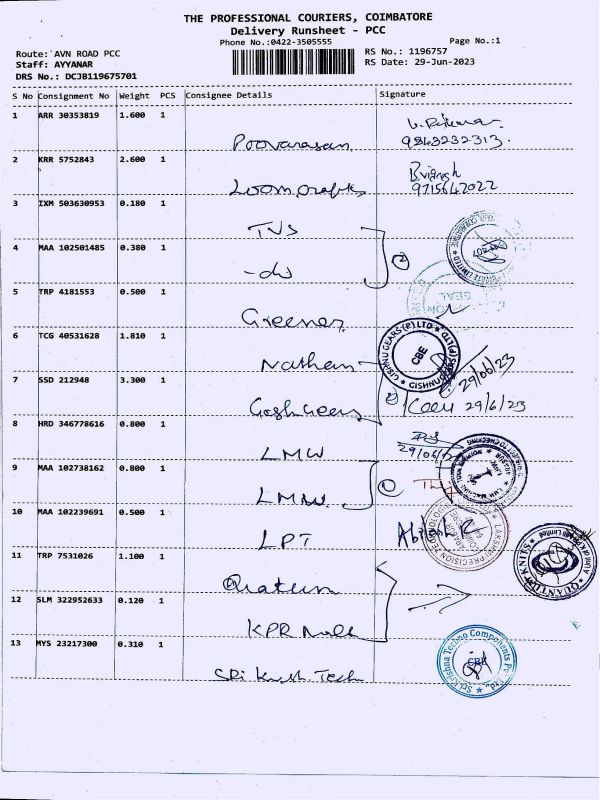 THE PROFESSIONAL COURIERS, COIMBATORE
Delivery Runsheet - PCC
Phone No.:0422-3505555
Page No.:1
Route: AVN ROAD PCC
RS No.: 1196757
Staff: AYYANAR
RS Date: 29-Jun-2023
DRS No.: DCJB119675701
S No Consignment No Weight PCS Consignee Details Signature
1 ARR 30353819 1.600 1
Poovarasan 9843232313.
2 KRR 5752843 2.600 1
9715642022
3 IXM 503630953 0.180 1
TVS
4 MAA 102501485 0.380 1
5 TRP 4181553 0.500 1
Greener
6 TCG 40531628 1.810 1
GISHNU GEARS (P) LTD
CBE
Nathan
29/06/23
7 SSD 212948 3.300 1
29/6/23
8 HRD 346778616 0.800 1
LMW
9 MAA 102738162 0.800 1
LMW
10 MAA 102239691 0.500 1
LPT
11 TRP 7531026 1.100 1
QUANTUM KNITS
12 SLM 322952633 0.120 1
KPR
13 MYS 23217300 0.310 1
Sri Krishna Techno Components Pvt. Ltd.
CBE
Sri Krish Tech